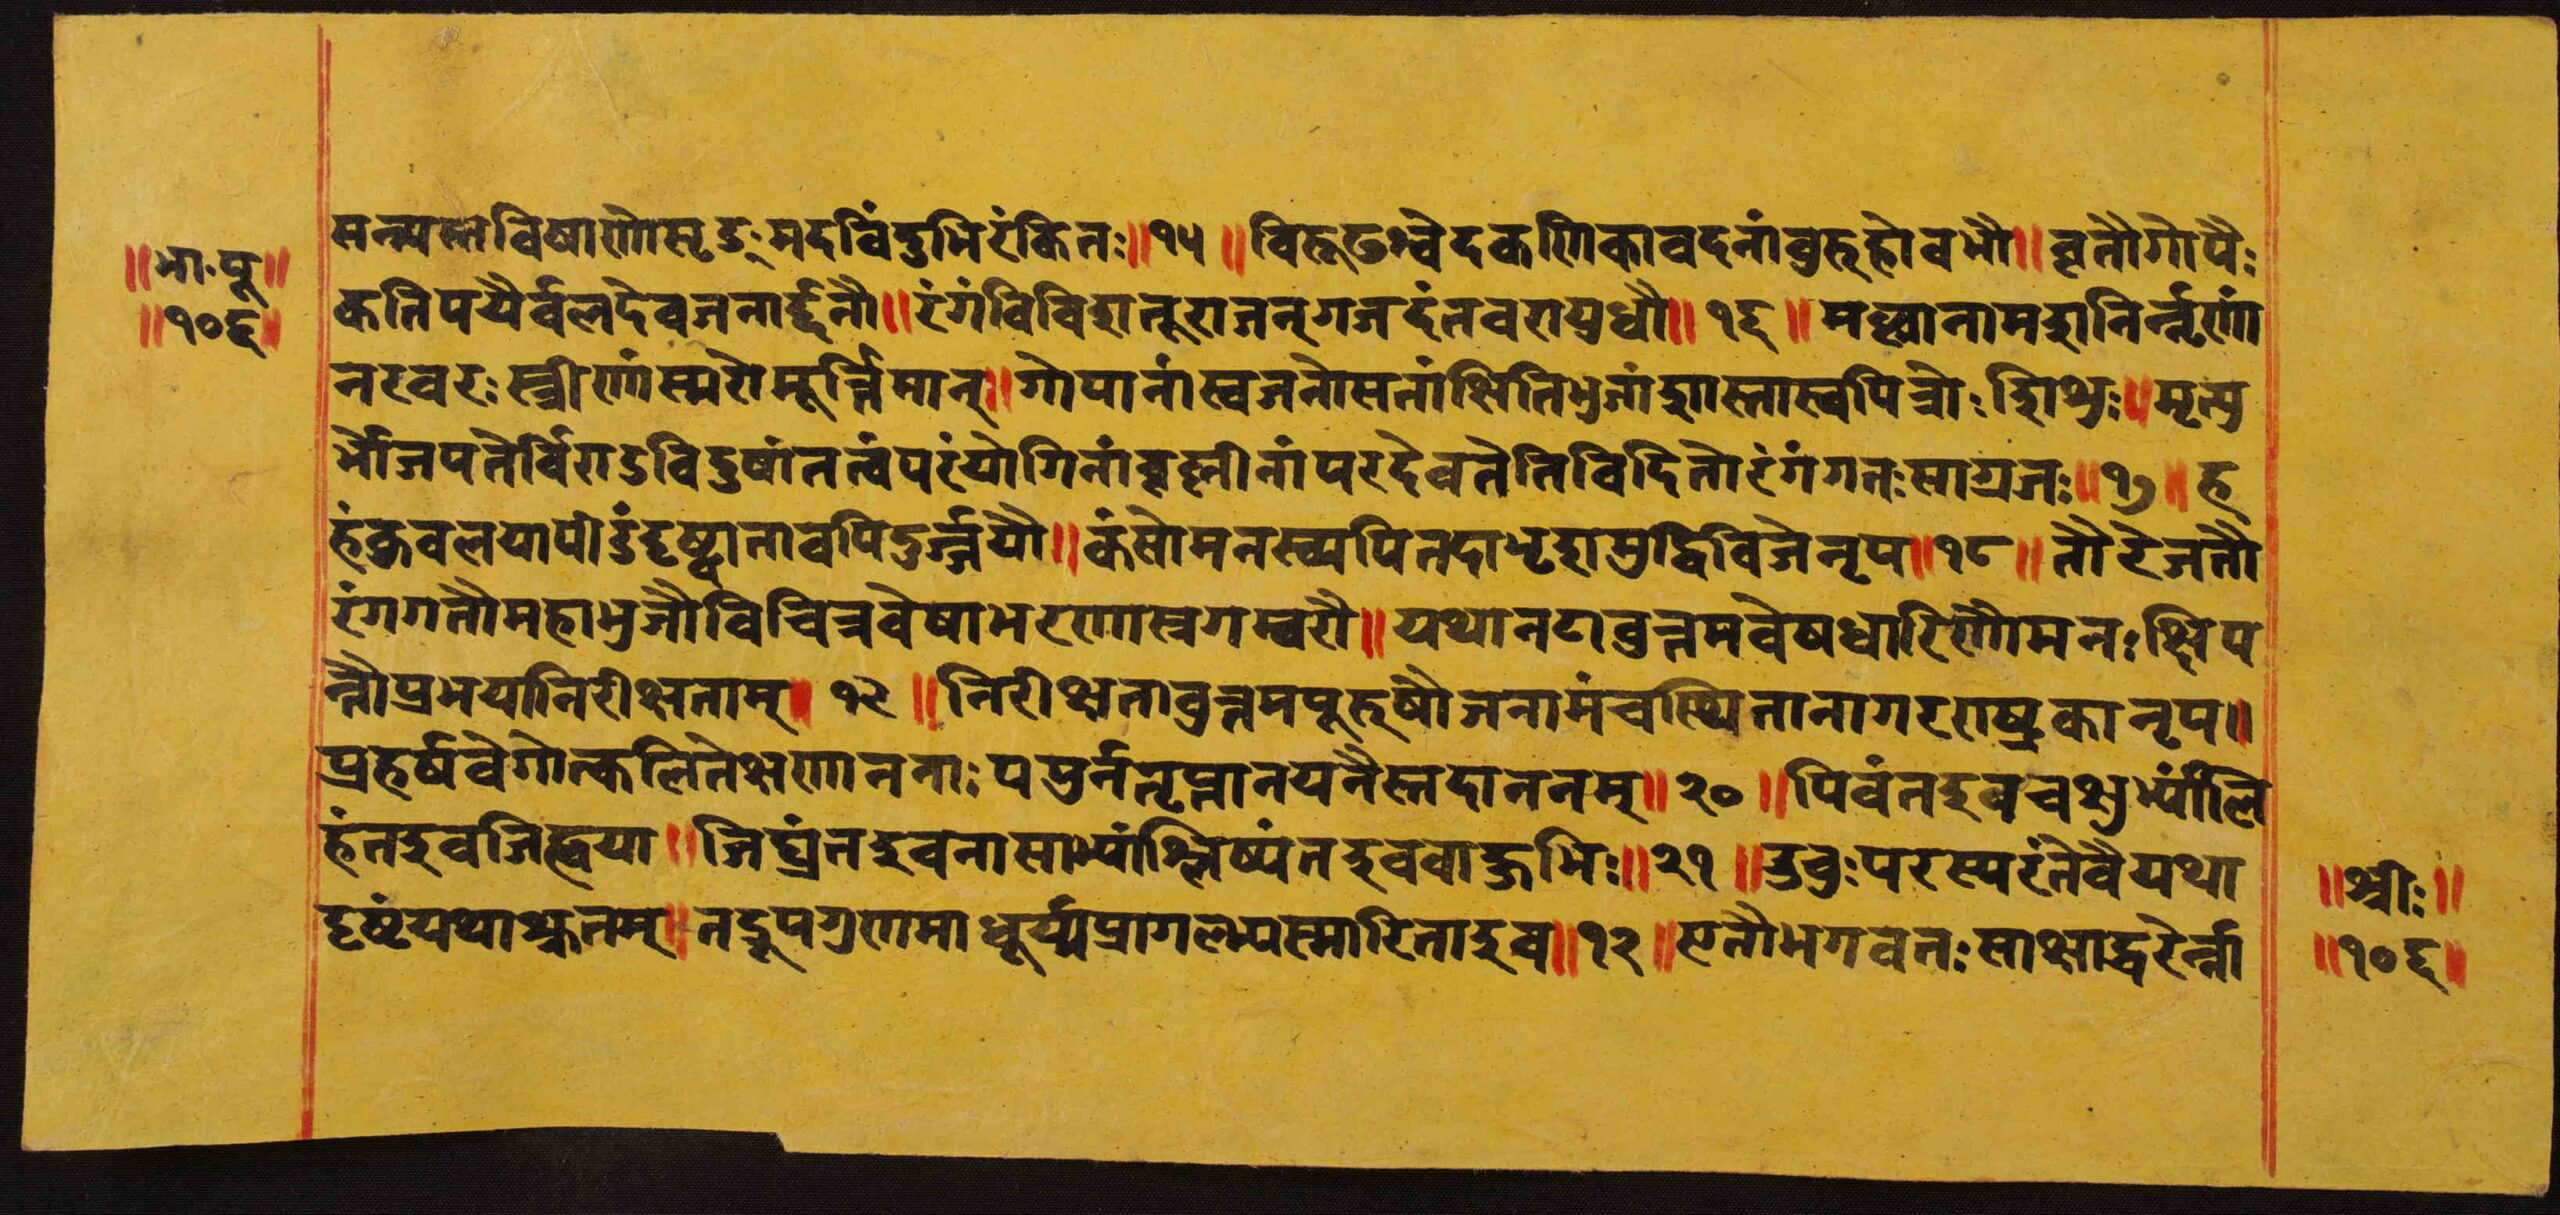 ॥भा॰पू॥
॥१०६॥
सन्यस्तविषाणोसृङ्मदविंदुभिरंकितः॥१५॥विरूढश्वेदकणिकावदनांवुरूहोवभौ॥वृतौगोपैः
कतिपयैर्वलदेवजनार्द्दनौ॥रंगंविविशतूराजन्गजदंतवरायुधौ॥१६॥मल्लानामशनिर्नृणां
नरवरःस्त्रीणांस्मरोमूर्त्तिमान्॥गोपानांस्वजनोसतांक्षितिभुजांशास्तास्वपित्रोःशिशुः॥मृत्यु
र्भोजपतेर्विराडविदुषांतत्त्वंपरंयोगिनांवृष्णीनांपरदेवतेतिविदितोरंगंगतःसाग्रजः॥१७॥ह
हंकुवलयापीडंदृष्ट्वातावपिदुर्ज्जयौ॥कंसोमनस्व्यपितदाभृशमुद्विविजेनृप॥१८॥तौरेजतौ
रंगगतौमहाभुजौविचित्रवेषाभरणास्रगम्वरौ॥यथानटावुत्तमवेषधारिणौमनःक्षिप
न्तौप्रभयानिरीक्षताम्॥१९॥निरीक्षतावुत्तमपूरूषौजनामंचस्थितानागरराष्ट्रकानृप॥
प्रहर्षवेगोत्कलितेक्षणाननाःपपुर्नतृप्तानयनैस्तदाननम्॥२०॥पिवंतइवचक्षुर्भ्यांलि
हंतइवजिह्वया॥जिघ्रंतइवनासाभ्यांश्लिष्यंतइववाहुभिः॥२१॥उवुःपरस्परंतेवैयथा
दृष्टंयथाश्रुतम्॥तद्रूपगुणमाधूर्य्यप्रागल्भ्यस्मारिताइव॥१२॥एतौभगवतःसाक्षाद्धरेर्न्ना
॥श्रीः॥
॥१०६॥